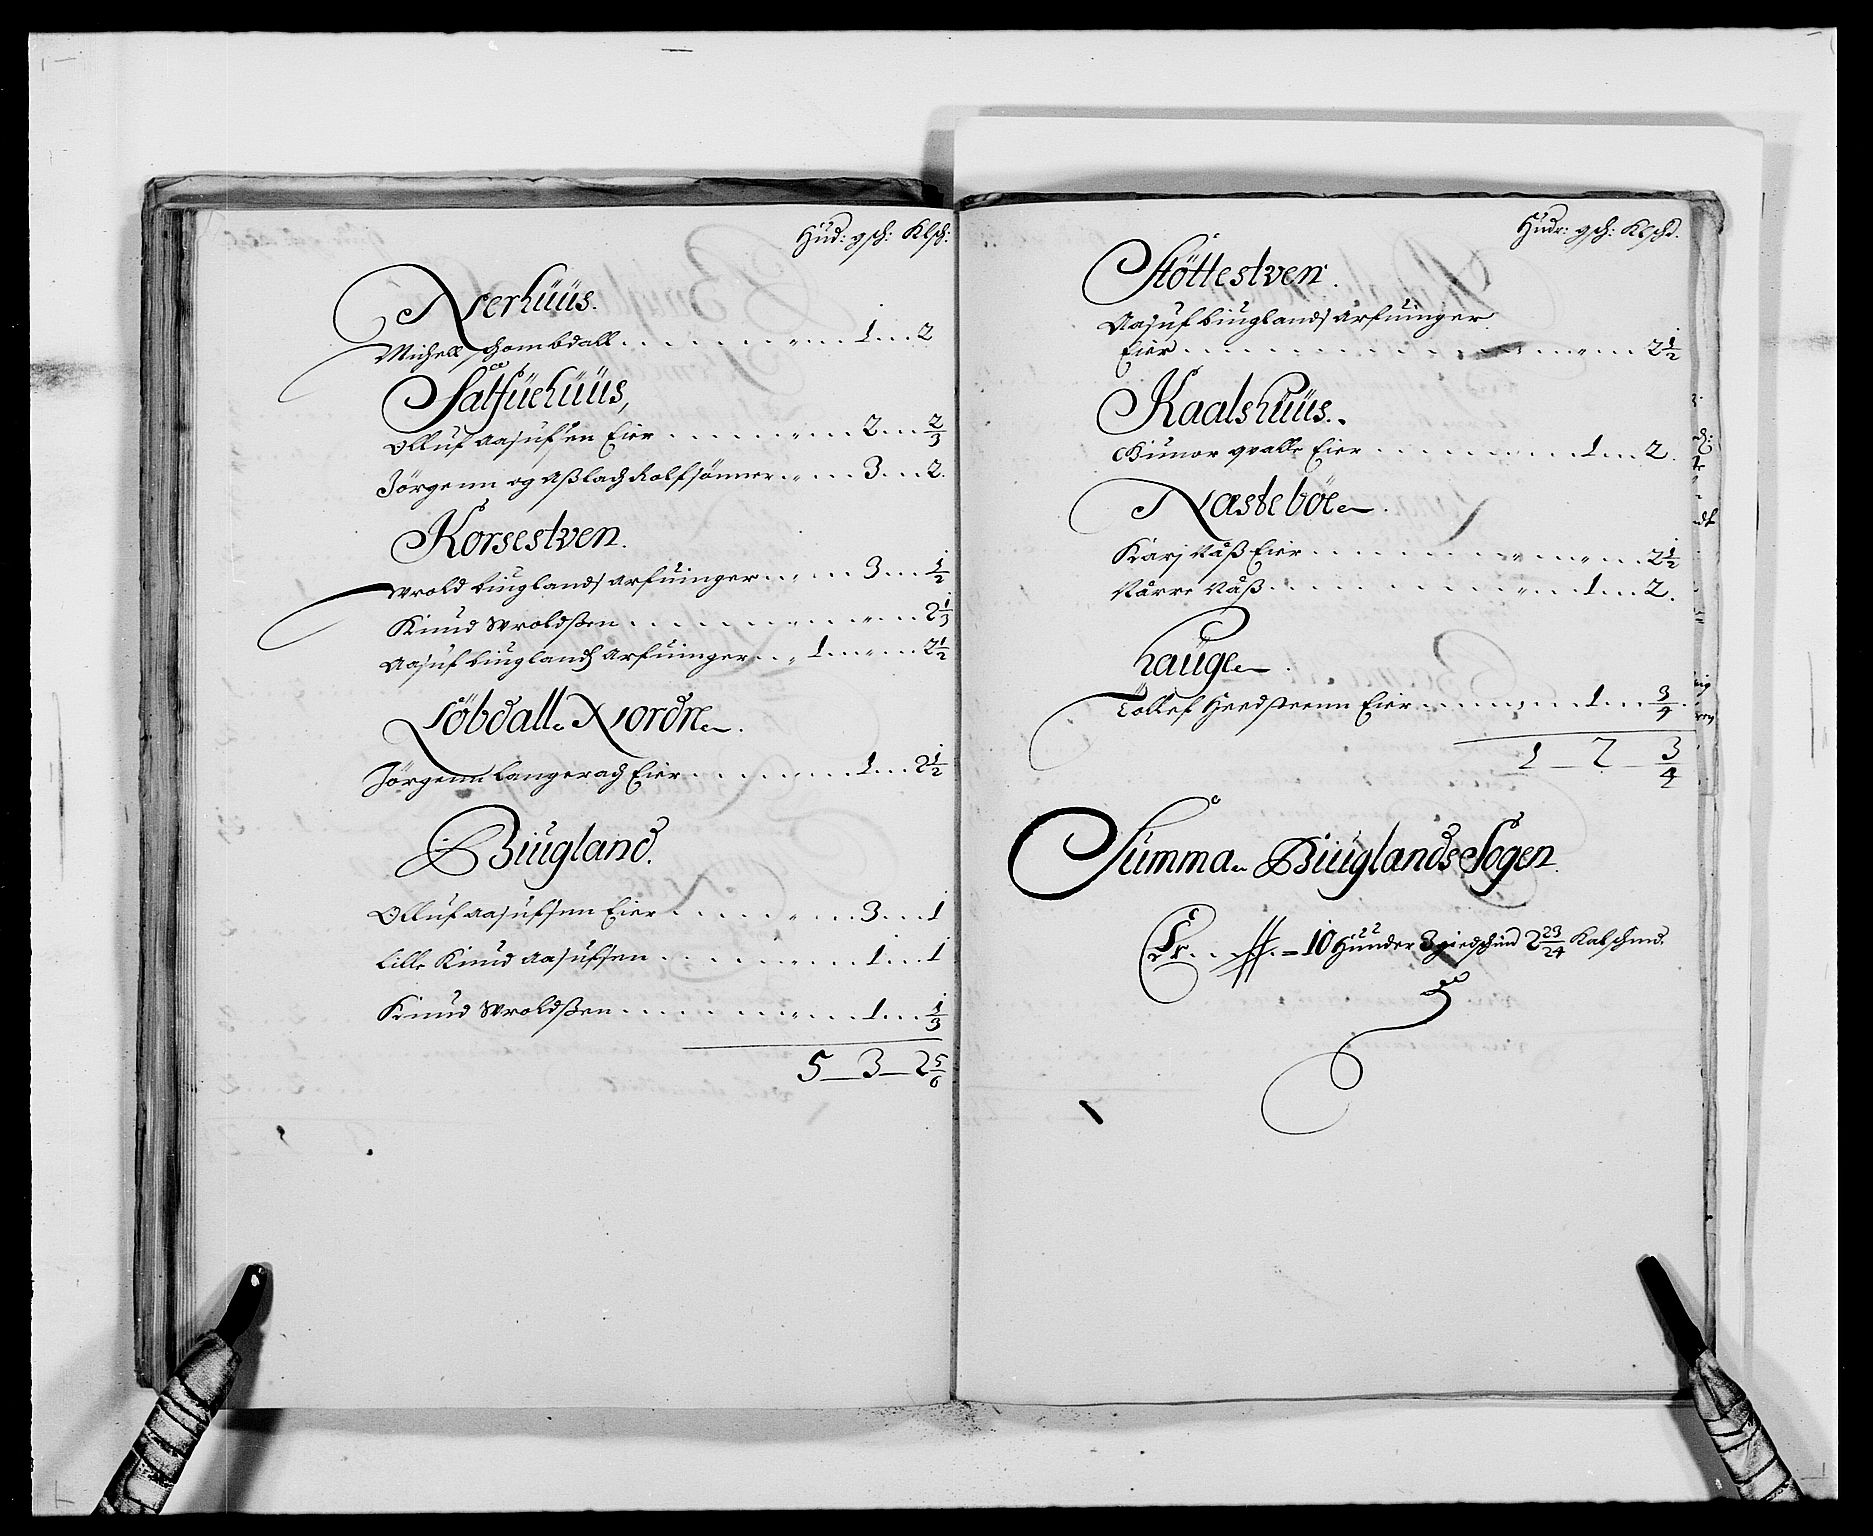 Hud: gsch: Klsch:
Nerhüüs.
Michell Hombdall . . . . . . . . „ . . . 1 . . . 2
Satfüehüüs,
Olluf Aasufsen Eier . . . . . . . „ . . . 2 . . . 2/3
Jörgenn og Aßlach Rolfsönner . . „ . . . 3 . . . 2.
Korsestven.
Wrold Biuglands Arfuinger . . „ . . . 3 . . . 1/2
Knud Wroldßen . . . . . . . . . „ . . . „ . . . 2 1/3
Aasuf Biuglands Arfuinger . . „ 1 . . . „ . . . 2 1/2
Löbdall Nordre.
Jörgenn Langerach Eier . . . . . . . . . 1 . . . 2 1/2
Biugland.
Olluf Aasufsenn Eier . . . . . . „ . . . 3 . . . 1
Lille Knud Aasufsen . . . . . . . „ . . . 1 . . . 1
Knud Wroldßen . . . . . . . . . „ . . . 1 . . . 1/3
5 _ 3 _ 2 5/6
Hudr: gsch: Klschd.
Stöttestven.
Aasuf Biuglands Arfuinger
Eier . . . . . . . . . . . . . . . . „ . . . 2 1/2
Kaalshüüs.
Gunor qvalle Eier . . . . . . . . . . . 1 . . . 2.
Nasteböe.
Karj Näß Eier . . . . . . . . . . „ . . . „ . . . 2 1/2
Närre Näß . . . . . . . . . . . „ . . . 1 . . . 2.
Hauge.
Tollef Heedsteenn Eier . . . . . „ . . . 1 . . . 3/4
1 _ 2 _ 3/4
Summa Biuglands Sogen.
Er . . . = 10 Huuder 3 giedschind 2 23/24 Kalschind.